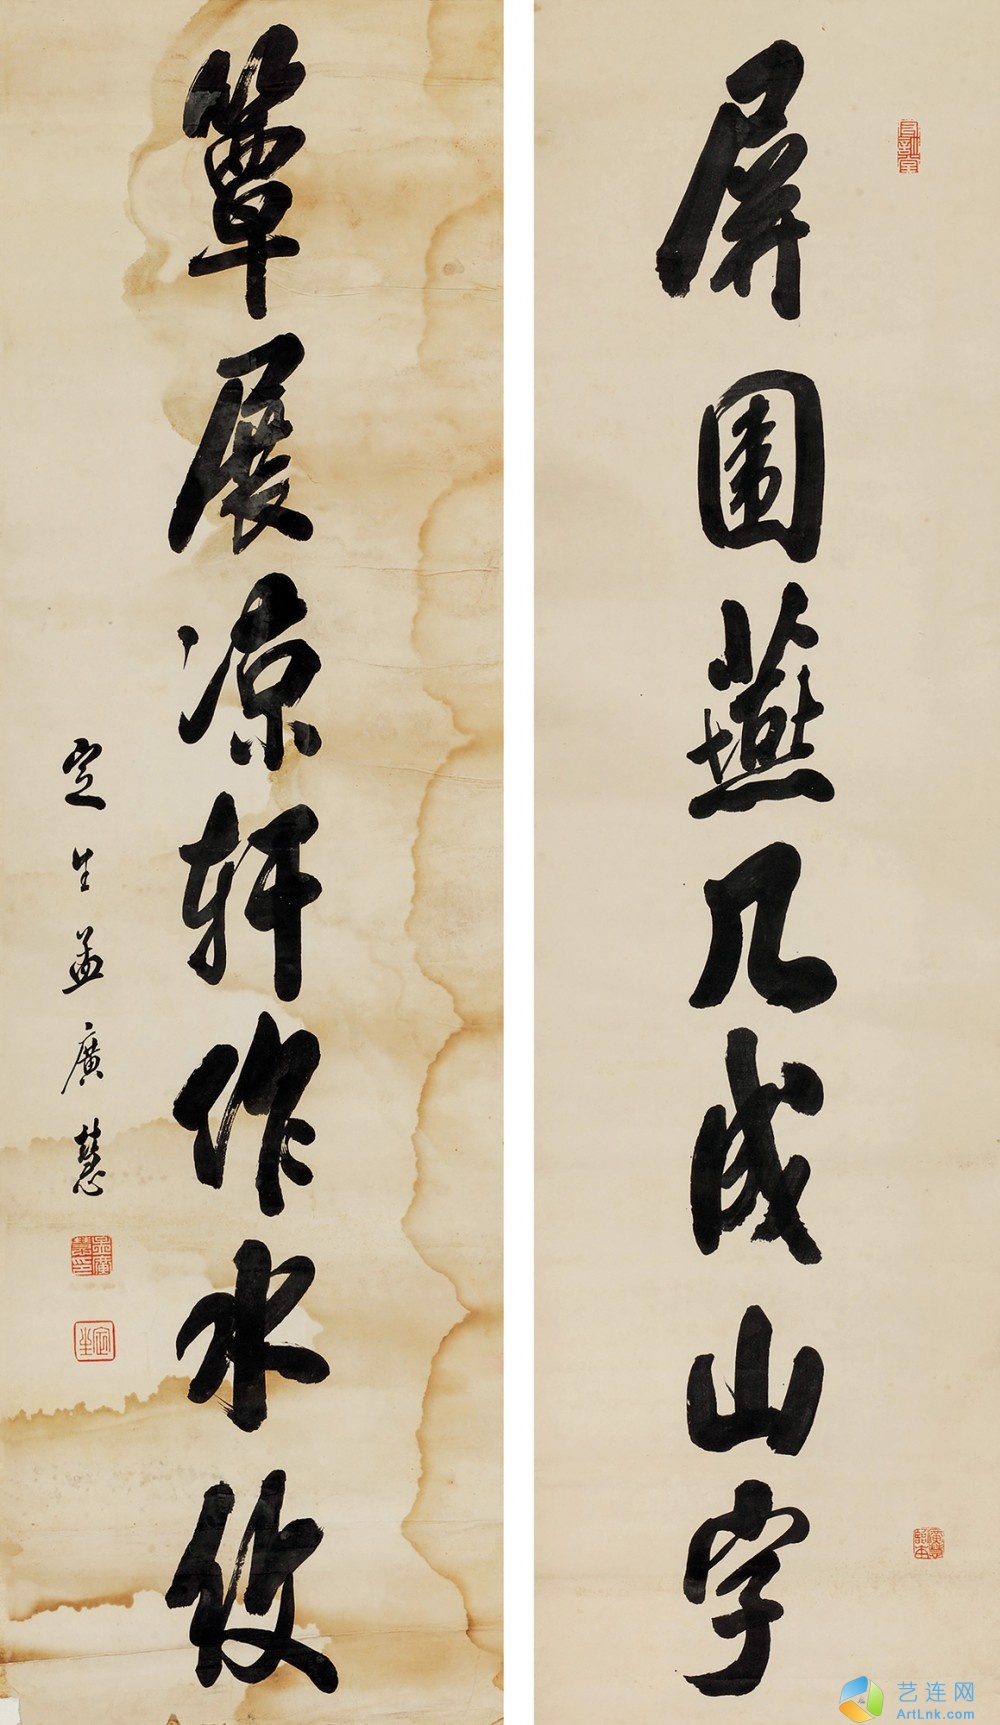 屏圍燕几成山字
簟展凉軒作水紋
定生孟廣慧
孟廣慧印
定生
艺连网
ArtLnk.com